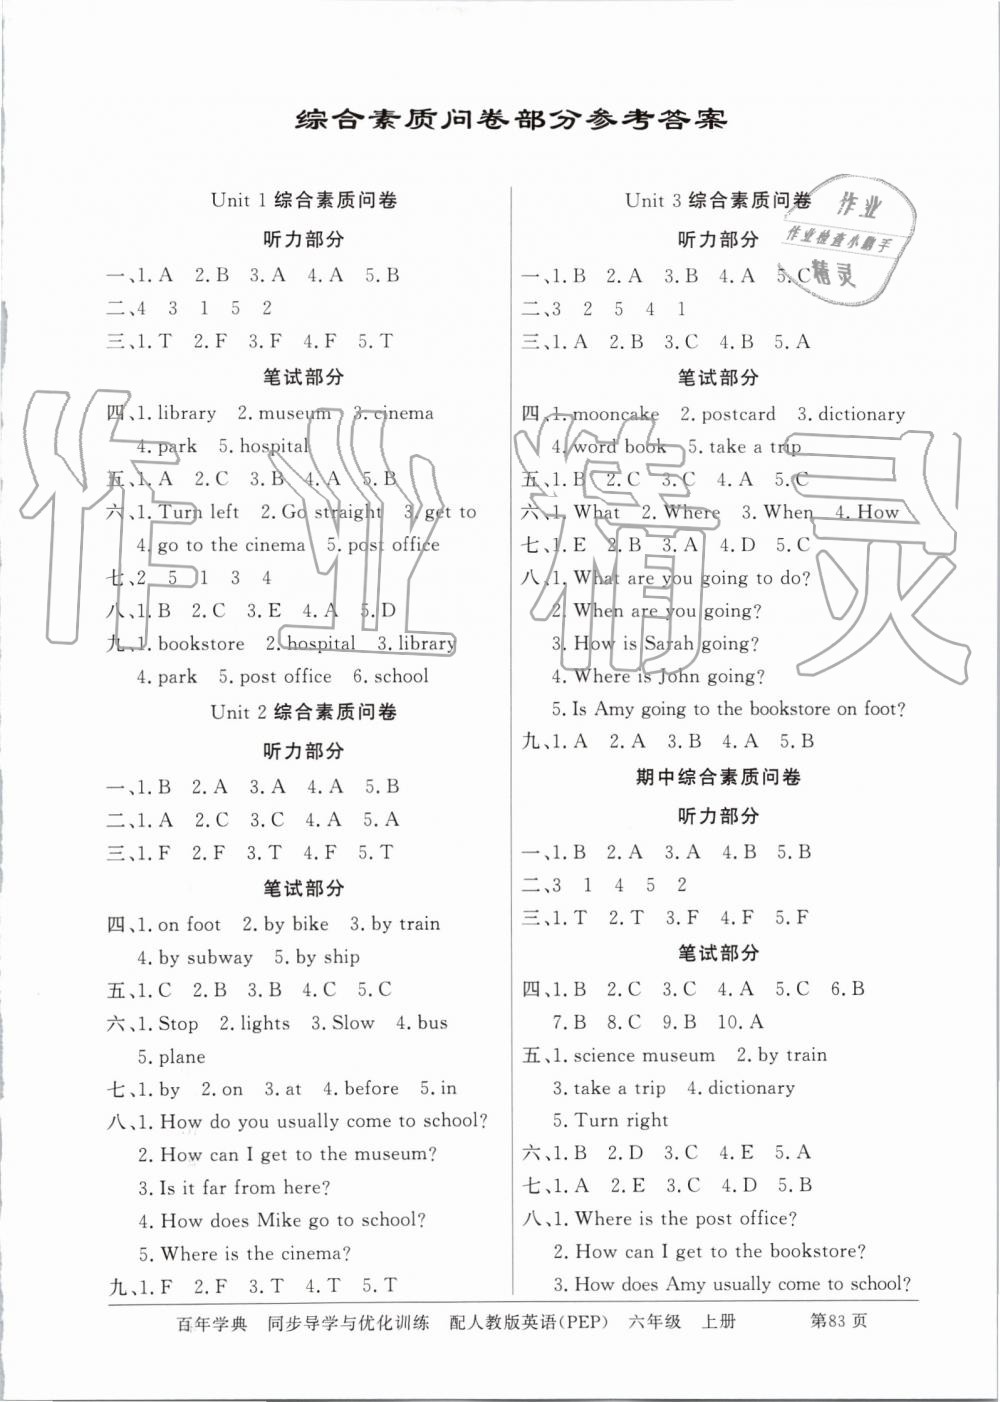 综合素质问卷部分参考答案
Unit 1 综合素质问卷
听力部分
一、1. A 2. B 3. A 4. A 5. B
二、4 3 1 5 2
三、1. T 2. F 3. F 4. F 5. T
笔试部分
四、1. library 2. museum 3. cinema
4. park 5. hospital
五、1. A 2. C 3. B 4. A 5. B
六、1. Turn left 2. Go straight 3. get to
4. go to the cinema 5. post office
七、2 5 1 3 4
八、1. B 2. C 3. E 4. A 5. D
九、1. bookstore 2. hospital 3. library
4. park 5. post office 6. school
Unit 2 综合素质问卷
听力部分
一、1. B 2. A 3. A 4. A 5. B
二、1. A 2. C 3. C 4. A 5. A
三、1. F 2. F 3. T 4. F 5. T
笔试部分
四、1. on foot 2. by bike 3. by train
4. by subway 5. by ship
五、1. C 2. B 3. B 4. C 5. C
六、1. Stop 2. lights 3. Slow 4. bus
5. plane
七、1. by 2. on 3. at 4. before 5. in
八、1. How do you usually come to school?
2. How can I get to the museum?
3. Is it far from here?
4. How does Mike go to school?
5. Where is the cinema?
九、1. F 2. F 3. T 4. T 5. T
Unit 3 综合素质问卷
听力部分
一、1. B 2. A 3. B 4. A 5. C
二、3 2 5 4 1
三、1. A 2. B 3. C 4. B 5. A
笔试部分
四、1. mooncake 2. postcard 3. dictionary
4. word book 5. take a trip
五、1. B 2. C 3. C 4. A 5. C
六、1. What 2. Where 3. When 4. How
七、1. E 2. B 3. A 4. D 5. C
八、1. What are you going to do?
2. When are you going?
3. How is Sarah going?
4. Where is John going?
5. Is Amy going to the bookstore on foot?
九、1. A 2. A 3. B 4. A 5. B
期中综合素质问卷
听力部分
一、1. B 2. A 3. A 4. B 5. B
二、3 1 4 5 2
三、1. T 2. T 3. F 4. F 5. F
笔试部分
四、1. B 2. C 3. C 4. A 5. C 6. B
7. B 8. C 9. B 10. A
五、1. science museum 2. by train
3. take a trip 4. dictionary
5. Turn right
六、1. B 2. D 3. C 4. E 5. A
七、1. A 2. E 3. C 4. D 5. B
八、1. Where is the post office?
2. How can I get to the bookstore?
3. How does Amy usually come to school?
百年学典 同步导学与优化训练 配人教版英语(PEP) 六年级 上册 第83页
作业
作业检查小帮手
精灵
作业精灵